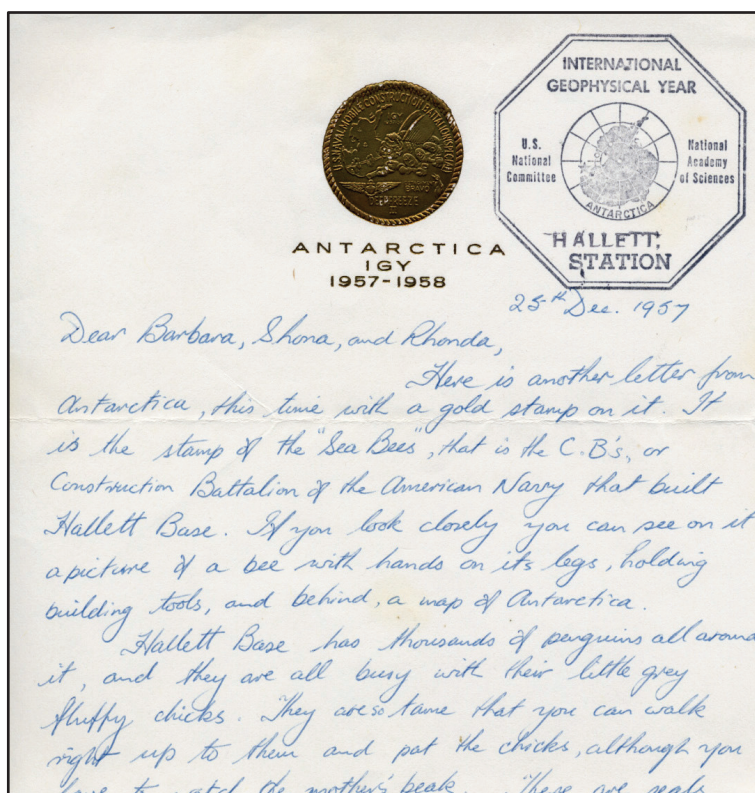 U.S. NAVAL MOBILE CONSTRUCTION BATTALION
IGY
BRAVO
DEEPFREEZE
II
ANTARCTICA
IGY
1957-1958
INTERNATIONAL
GEOPHYSICAL YEAR
U.S.
National
Committee
National
Academy
of Sciences
ANTARCTICA
HALLETT
STATION
25th Dec. 1957
Dear Barbara, Shona, and Rhonda,
Here is another letter from
Antarctica, this time with a gold stamp on it. It
is the stamp of the "Sea Bees", that is the C.B's, or
Construction Battalion of the American Navy that built
Hallett Base. If you look closely you can see on it
a picture of a bee with hands on its legs, holding
building tools, and behind, a map of Antarctica.
Hallett Base has thousands of penguins all around
it, and they are all busy with their little grey
fluffy chicks. They are so tame that you can walk
right up to them and pat the chicks, although you
have to watch the mother's beak. There are seals